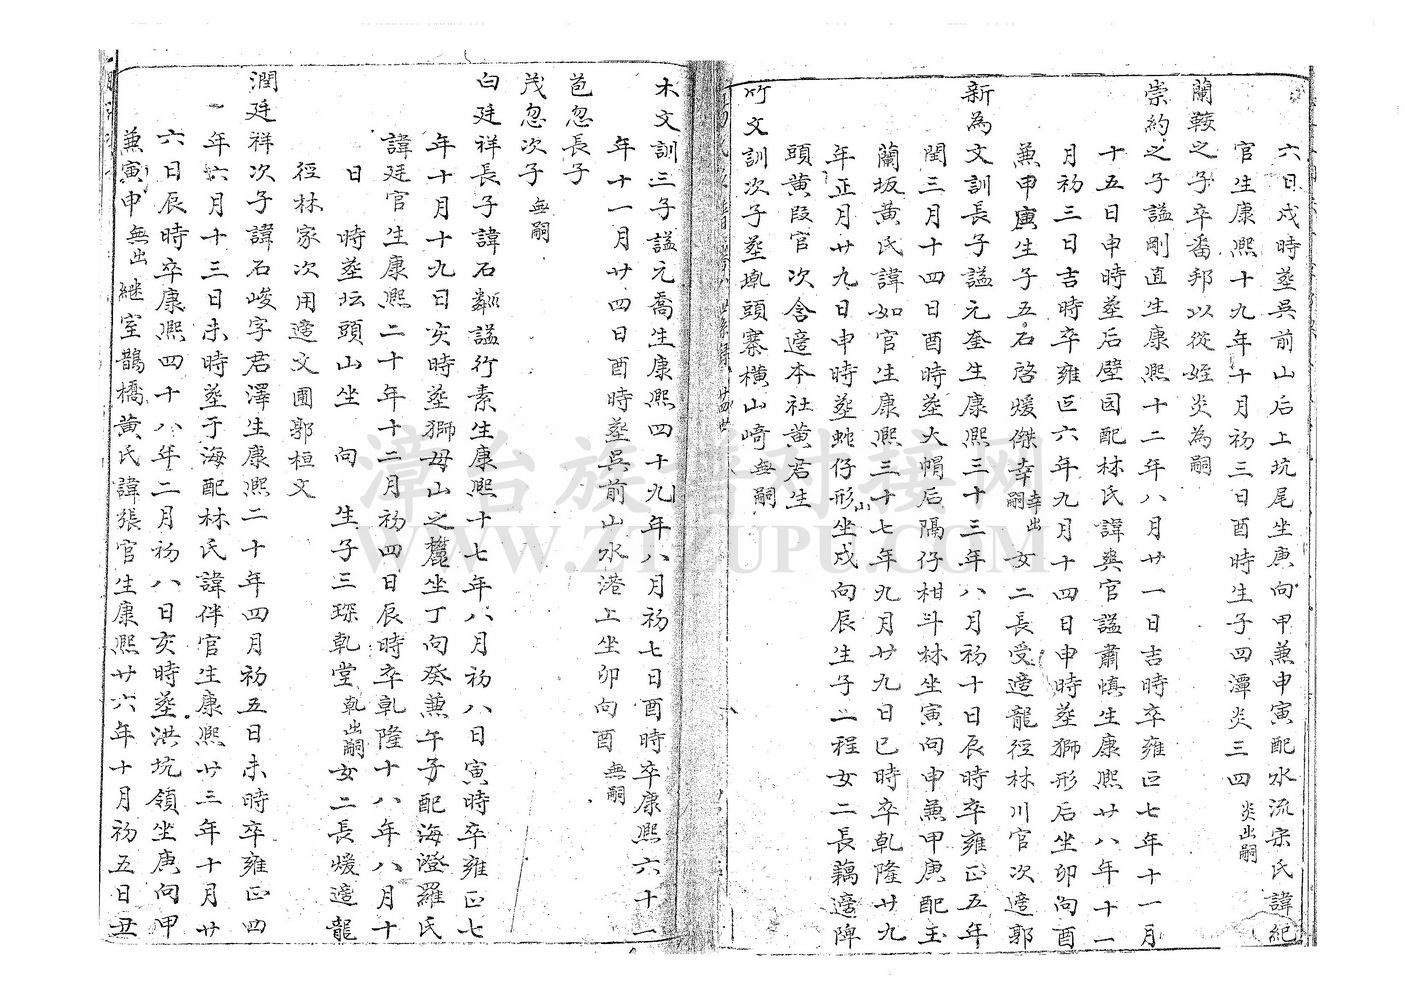 六日戍時塟吳前山后上坑尾坐庚向甲兼申寅配水流宗氏諱紀
官生康熙十九年十月初三日酉時生子四潭炎三四 炎出嗣
蘭鞍之子卒番邦以從姪炎為嗣
崇約之子諡剛直生康熙十二年八月廿一日吉時卒雍正七年十一月
十五日申時塟后壁园配林氏諱 官諡肅慎生康熙廿八年十一
月初三日吉時卒雍正六年九月十四日申時塟獅形后坐卯向酉
兼甲庚生子五石啓煖傑幸 幸出嗣 女二長受適龍徑林川官次適郭
新為文訓長子諡元奎生康熙三十三年八月初十日辰時卒雍正五年
閏三月十四日酉時塟大帽后隔仔柑斗林坐寅向申兼甲庚配玉
蘭坂黃氏諱如官生康熙三十七年九月廿九日巳時卒乾隆廿九
年正月廿九日申時塟蚶仔形山坐戍向辰生子二程女二長藕適陴
頭黃段官次含適本社黃君生
竹文訓次子塟埔頭寨橫山崎 無嗣
木文訓三子諡元喬生康熙四十九年八月初七日酉時卒康熙六十一
年十一月廿四日酉時塟吳前山水港上坐卯向酉 無嗣
芭忽長子
茂忽次子 無嗣
白廷祥長子諱石鄰諡行素生康熙十七年八月初八日寅時卒雍正七
年十月十九日亥時塟獅母山之麓坐丁向癸兼午子配海澄羅氏
諱廷官生康熙二十年十二月初四日辰時卒乾隆十八年八月十
日 時塟坛頭山坐 向 生子三琛乾堂 乾出嗣 女二長煖適龍
徑林家次用適文圃郭桓文
潤廷祥次子諱石峻字君澤生康熙二十年四月初五日未時卒雍正四
年六月十三日未時塟于海配林氏諱伴官生康熙廿三年十月廿
六日辰時卒康熙四十八年二月初八日亥時塟洪坑領坐庚向甲
兼寅申 無出 継室鵲橋黃氏諱張官生康熙廿六年十月初五日丑
漳台族谱对接网
WWW.ZTZUPU.COM